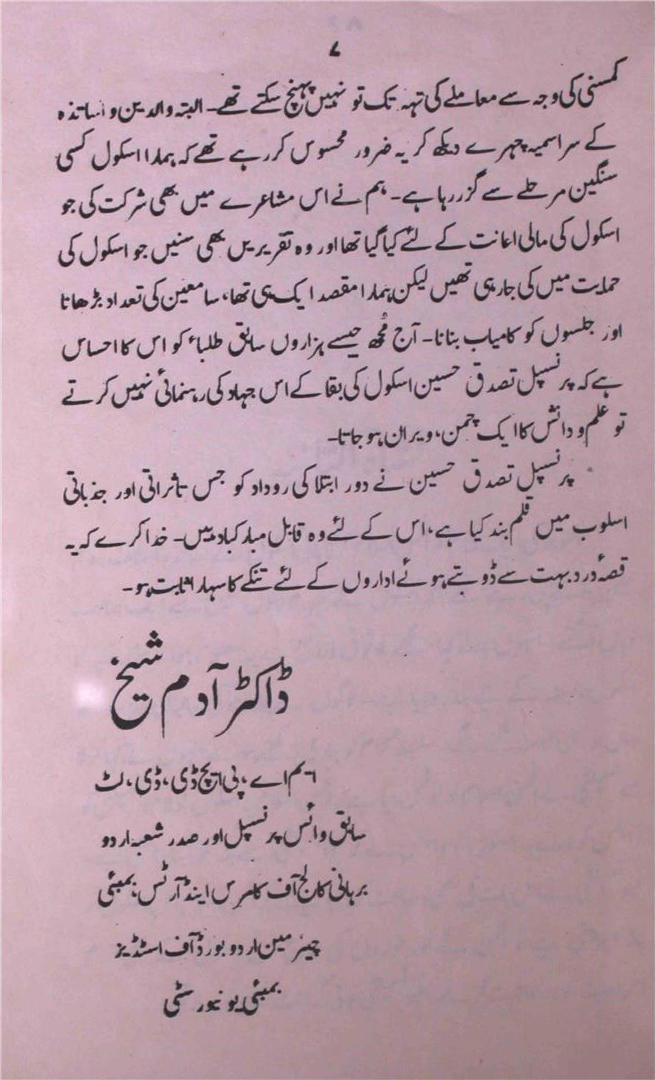 ۷
کمسنی کی وجہ سے معاملے کی تہہ تک تو نہیں پہنچ سکتے تھے۔ البتہ والدین و اساتذہ
کے سراسمیہ چہرے دیکھ کر یہ ضرور محسوس کر رہے تھے کہ ہمارا اسکول کسی
سنگین مرحلے سے گزر رہا ہے۔ ہم نے اس مشاعرے میں بھی شرکت کی جو
اسکول کی مالی اعانت کے لئے کیا گیا تھا اور وہ تقریریں بھی سنیں جو اسکول کی
حمایت میں کی جارہی تھیں لیکن ہمارا مقصد ایک ہی تھا، سامعین کی تعداد بڑھانا
اور جلسوں کو کامیاب بنانا۔ آج مُجھ جیسے ہزاروں سابق طلباء کو اس کا احساس
ہے کہ پرنسپل تصدق حسین اسکول کی بقا کے اس جہاد کی رہنمائی نہیں کرتے
تو علم و دانش کا ایک چمن، ویران ہو جاتا۔
پرنسپل تصدق حسین نے دور ابتلا کی روداد کو جس تاثراتی اور جذباتی
اسلوب میں قلم بند کیا ہے، اس کے لئے وہ قابل مبارکباد ہیں۔ خدا کرے کہ یہ
قصۂ درد بہت سے ڈوبتے ہوئے اداروں کے لئے تنکے کا سہارا ثابت ہو۔
ڈاکٹر آدم شیخ
ایم اے، پی ایچ ڈی، ڈی، لٹ
سابق وائس پرنسپل اور صدر شعبہ اردو
برہانی کالج آف کامرس اینڈ آرٹس، بمبئی
چیئرمین اردو بورڈ آف اسٹڈیز
بمبئی یونیورسٹی